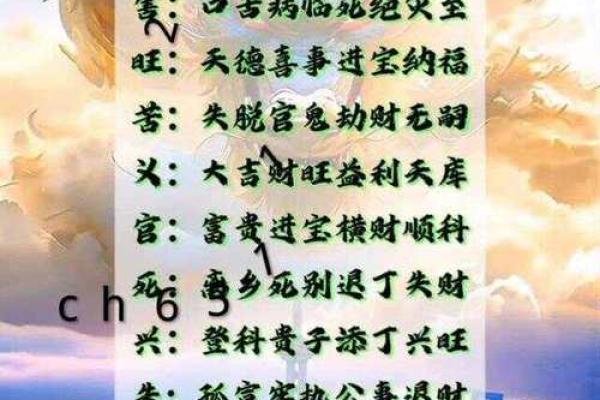 害：口舌病临死绝灾至
2
旺：天德喜事进宝纳福
苦：失脱官鬼劫财无嗣
1
义：大吉财旺益利天库
官：富贵进宝横财顺科
1
死：离乡死别退丁失财
ch65
兴：登科贵子添丁兴旺
失：孤寡牢执公事退财